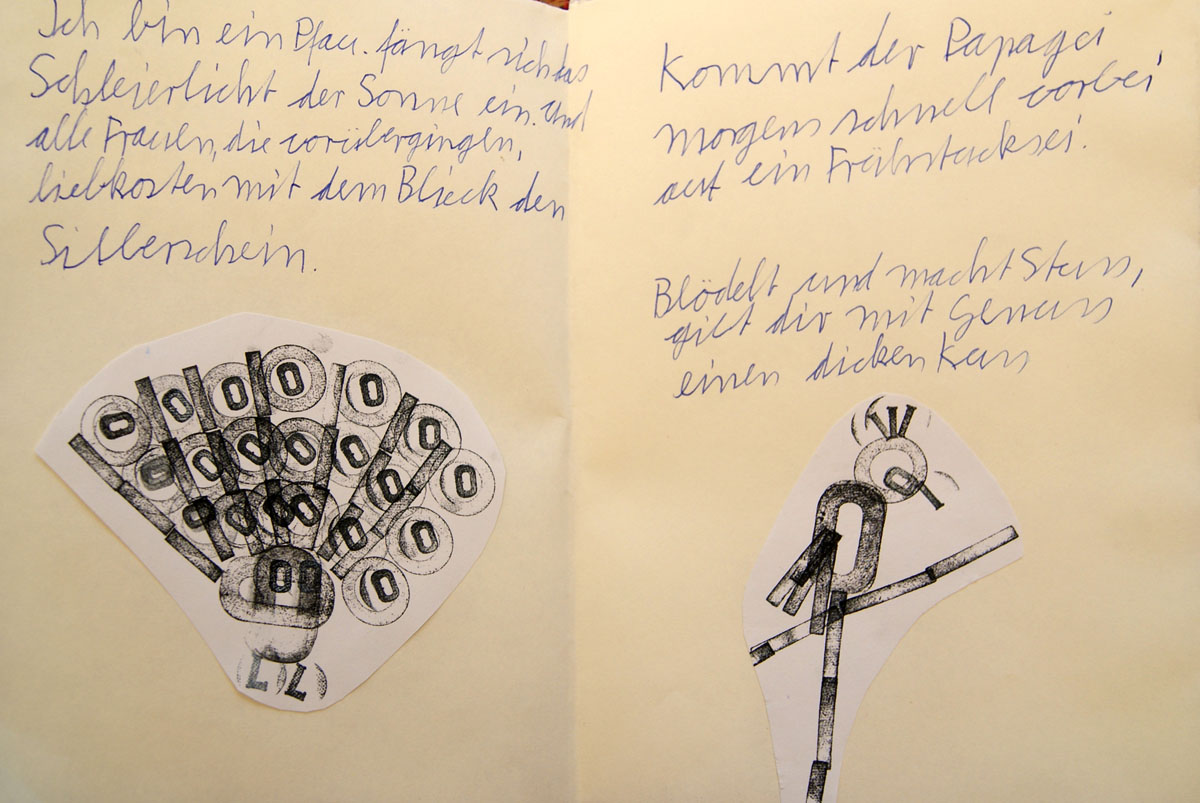 Ich bin ein Pfau. fängt sich das
Schleierlicht der Sonne ein. und
alle Frauen, die vorübergingen,
liebkosten mit dem Blick den
Silberschein.
Kommt der Papagei
morgens schnell vorbei
auf ein Frühstücksei.
Blödelt und macht Stuss,
gibt dir mit Genuss
einen dicken Kuss